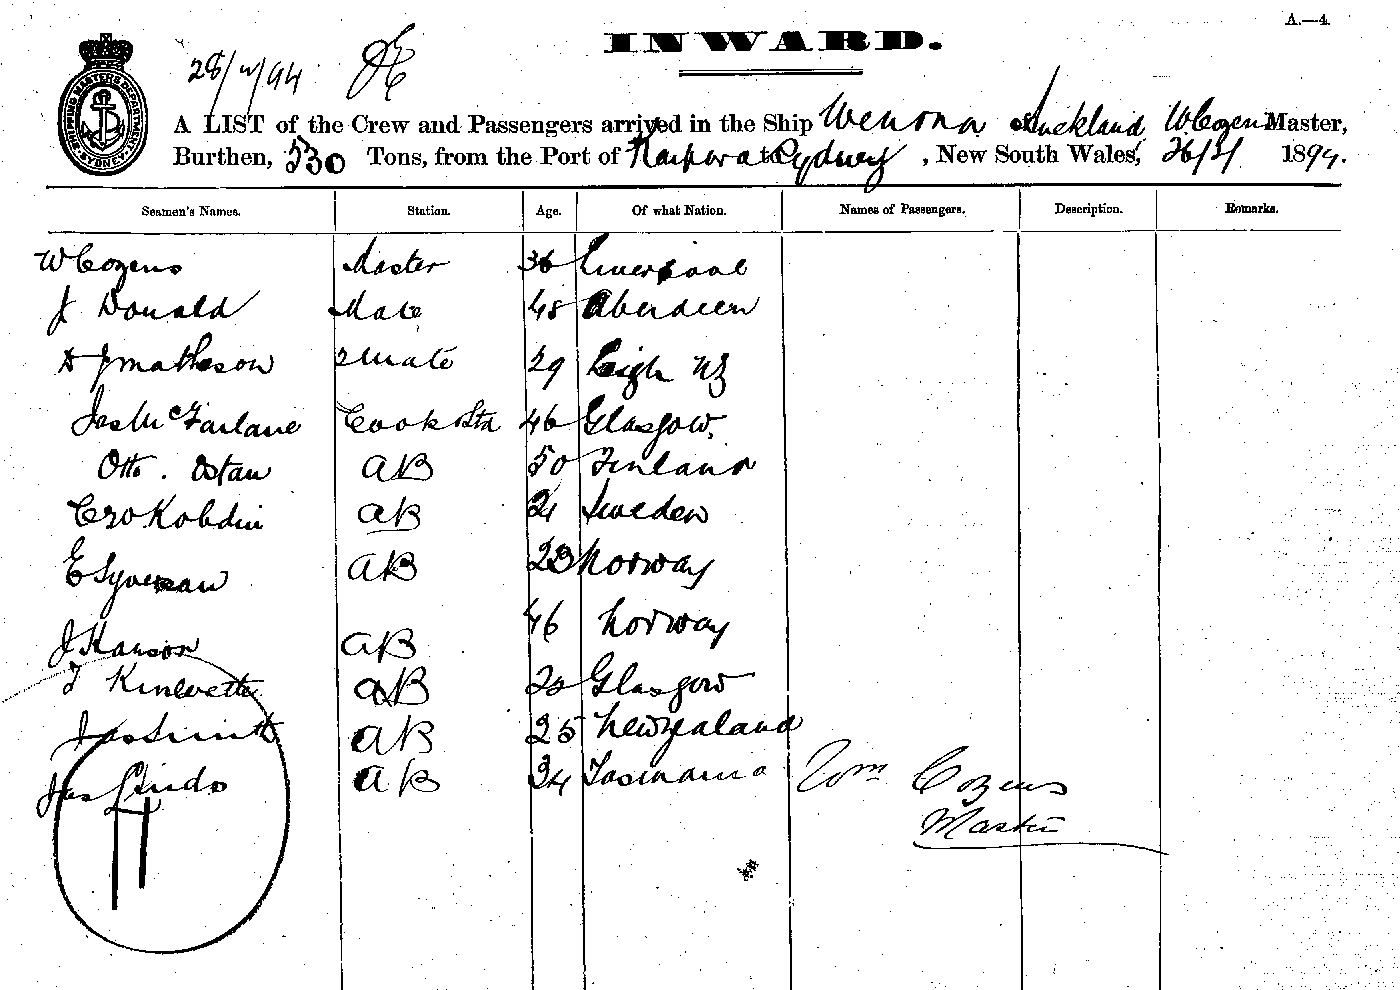 A.—4.
INWARD.
28/ /94
SHIPPING MASTERS DEPARTMENT SYDNEY
A LIST of the Crew and Passengers arrived in the Ship Wenona of Auckland W Cozens Master,
Burthen, 530 Tons, from the Port of Kaipara to Sydney, New South Wales, 1894.
Seamen's Names. Station. Age. Of what Nation. Names of Passengers. Description. Remarks.
W Cozens Master 36 Liverpool
J Donald Mate 48 Aberdeen
Matheson 2 Mate 29 Leigh NZ
Jas McFarlane Cook & Std 46 Glasgow
Otto Ostan AB 50 Finland
AB Sweden
E Syversan AB 23 Norway
J Hanson AB 46 Norway
AB Glasgow
Jas Smith AB 25 New Zealand
Jas Lindo AB 34 Tasmania Wm Cozens
Master
11